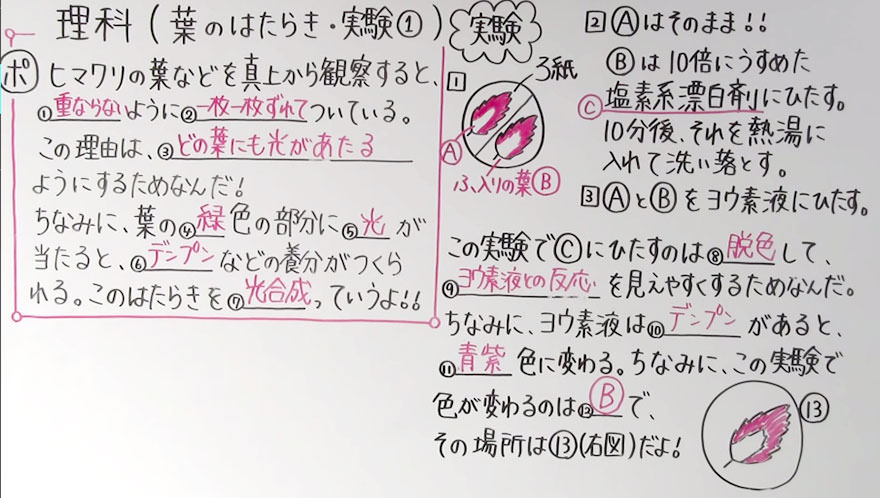 理科(葉のはたらき・実験①)
ポ ヒマワリの葉などを真上から観察すると、
①重ならないように②一枚一枚ずれてついている。
この理由は、③どの葉にも光があたる
ようにするためなんだ!
ちなみに、葉の④緑色の部分に⑤光が
当たると、⑥デンプンなどの養分がつくら
れる。このはたらきを⑦光合成っていうよ!!
実験
1
ろ紙
A
ふ入りの葉B
2 Ⓐはそのまま!!
Ⓑは10倍にうすめた
Ⓒ塩素系漂白剤にひたす。
10分後、それを熱湯に
入れて洗い落とす。
3 ⒶとⒷをヨウ素液にひたす。
この実験でⒸにひたすのは⑧脱色して、
⑨ヨウ素液との反応を見えやすくするためなんだ。
ちなみに、ヨウ素液は⑩デンプンがあると、
⑪青紫色に変わる。ちなみに、この実験で
色が変わるのは⑫Ⓑで、
その場所は⑬(右図)だよ!
⑬